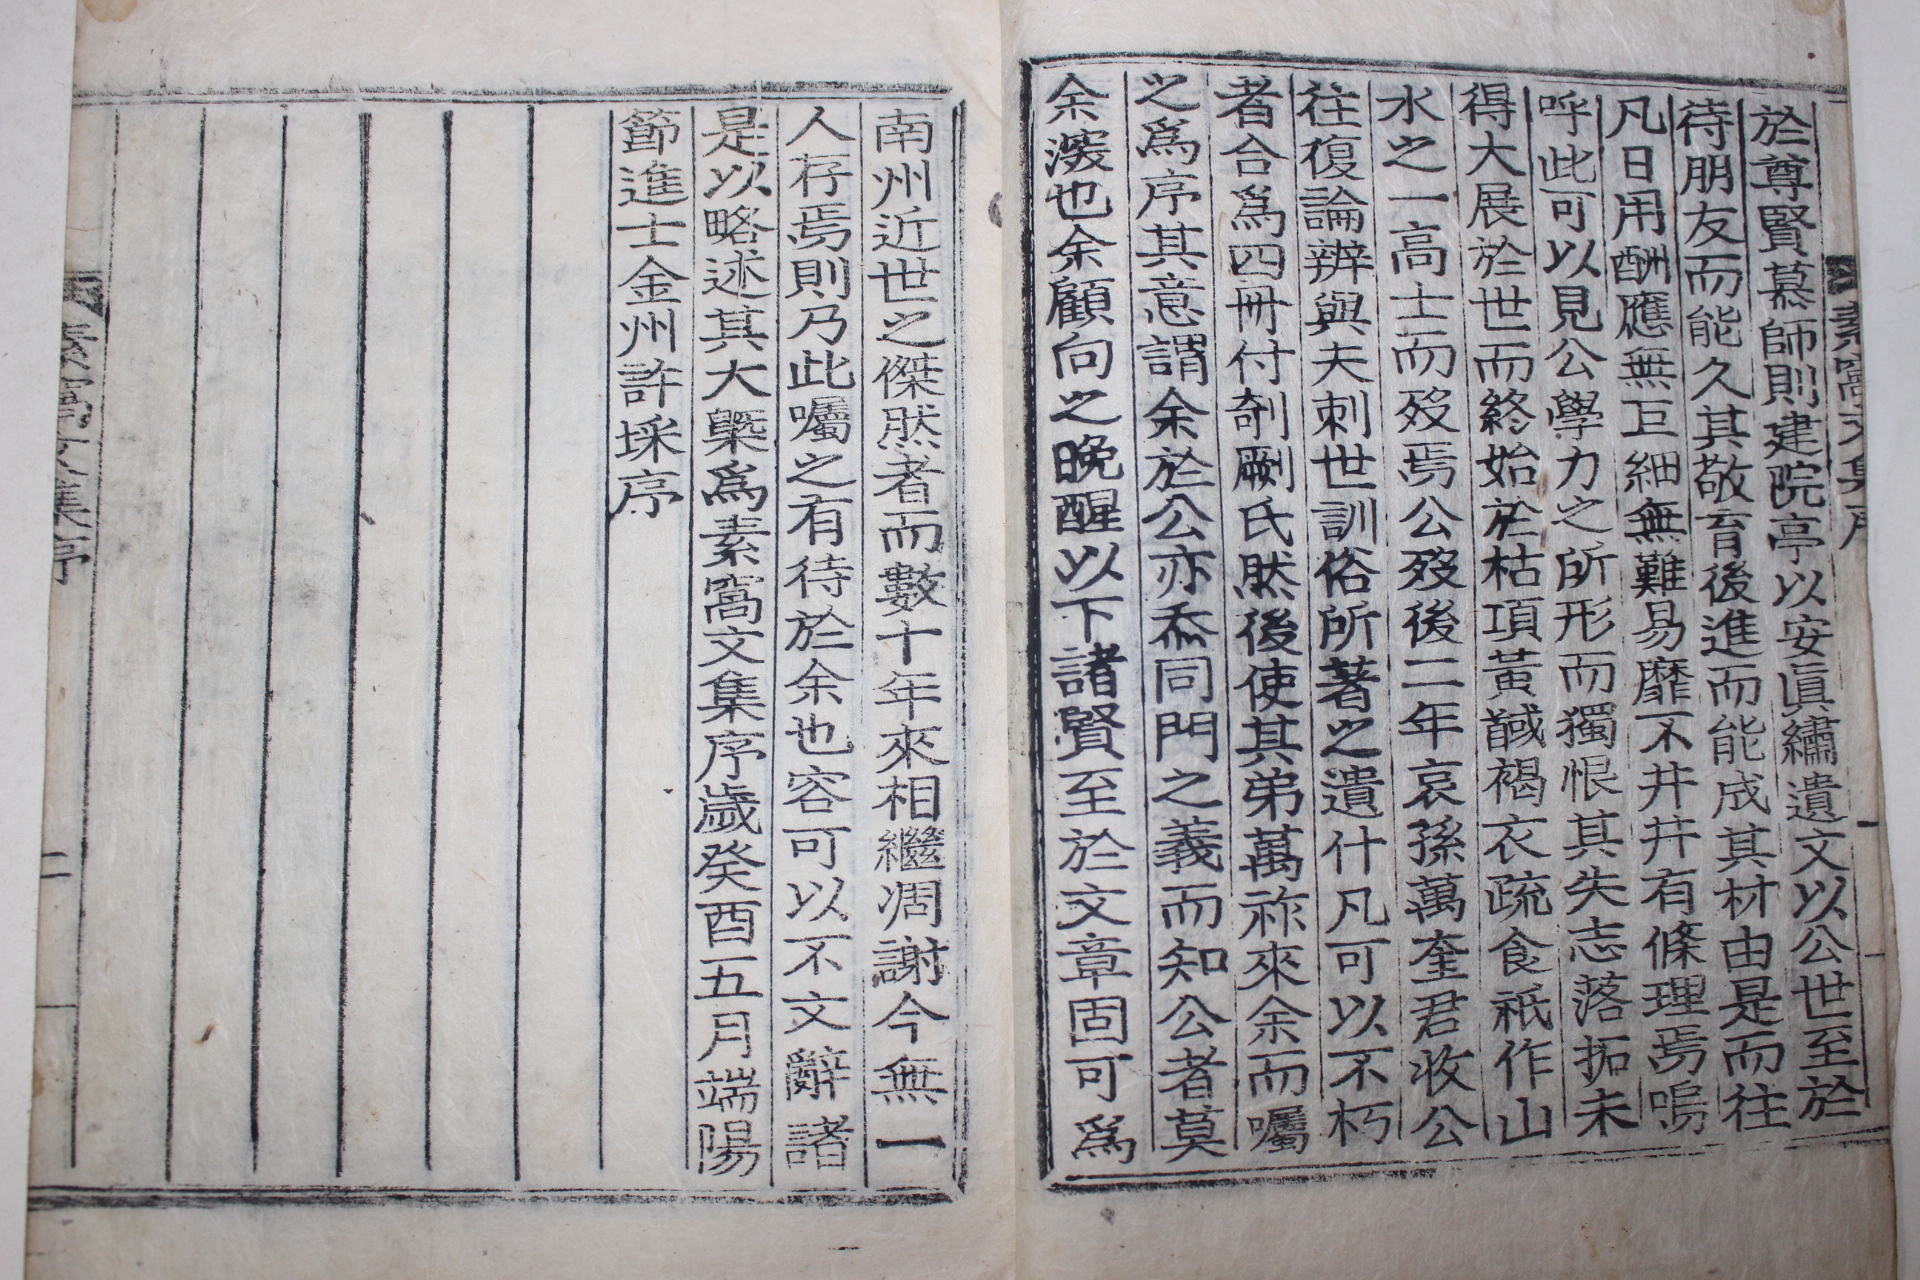 素窩文集序
於尊賢慕師則建院亭以安眞繡遺文以公世至於
待朋友而能久其敬育後進而能成其材由是而往
凡日用酬應無巨細無難易靡不井井有條理焉嗚
呼此可以見公學力之所形而獨恨其失志落拓未
得大展於世而終始於枯項黃馘褐衣疏食祇作山
水之一高士而歿焉公歿後二年哀孫萬奎君收公
往復論辨與夫刺世訓俗所著之遺什凡可以不朽
者合爲四冊付剞劂氏然後使其弟萬祚來余而囑
之爲序其意謂余於公亦忝同門之義而知公者莫
余深也余顧向之晩醒以下諸賢至於文章固可爲
南州近世之傑然者而數十年來相繼凋謝今無一
人存焉則乃此囑之有待於余也容可以不文辭諸
是以略述其大槩爲素窩文集序歲癸酉五月端陽
節進士金州許埰序
素窩文集序
二